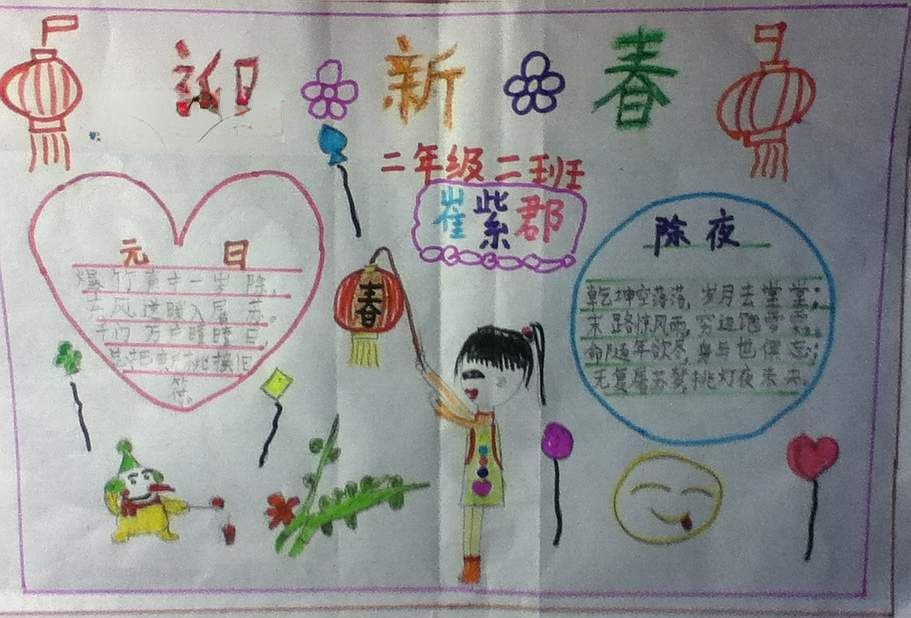 迎 新 春
二年级二班
崔紫郡
元 日
爆竹声中一岁除,
春风送暖入屠苏。
千门万户曈曈日,
总把新桃换旧
符。
春
除夜
乾坤空落落,岁月去堂堂;
末路惊风雨,穷边饱雪霜。
命随年欲尽,身与世俱忘;
无复屠苏梦,挑灯夜未央。